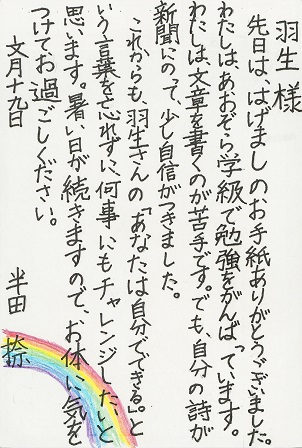 羽生様
先日は、はげましのお手紙ありがとうございました。
わたしはあおぞら学級で勉強をがんばっています。
わたしは、文章を書くのが苦手です。でも、自分の詩が
新聞にのって、少し自信がつきました。
これからも、羽生さんの「あなたは自分でできる。」と
いう言葉を忘れずに、何事にもチャレンジしたいと
思います。暑い日が続きますので、お体に気を
つけてお過ごしください。
文月十九日
半田